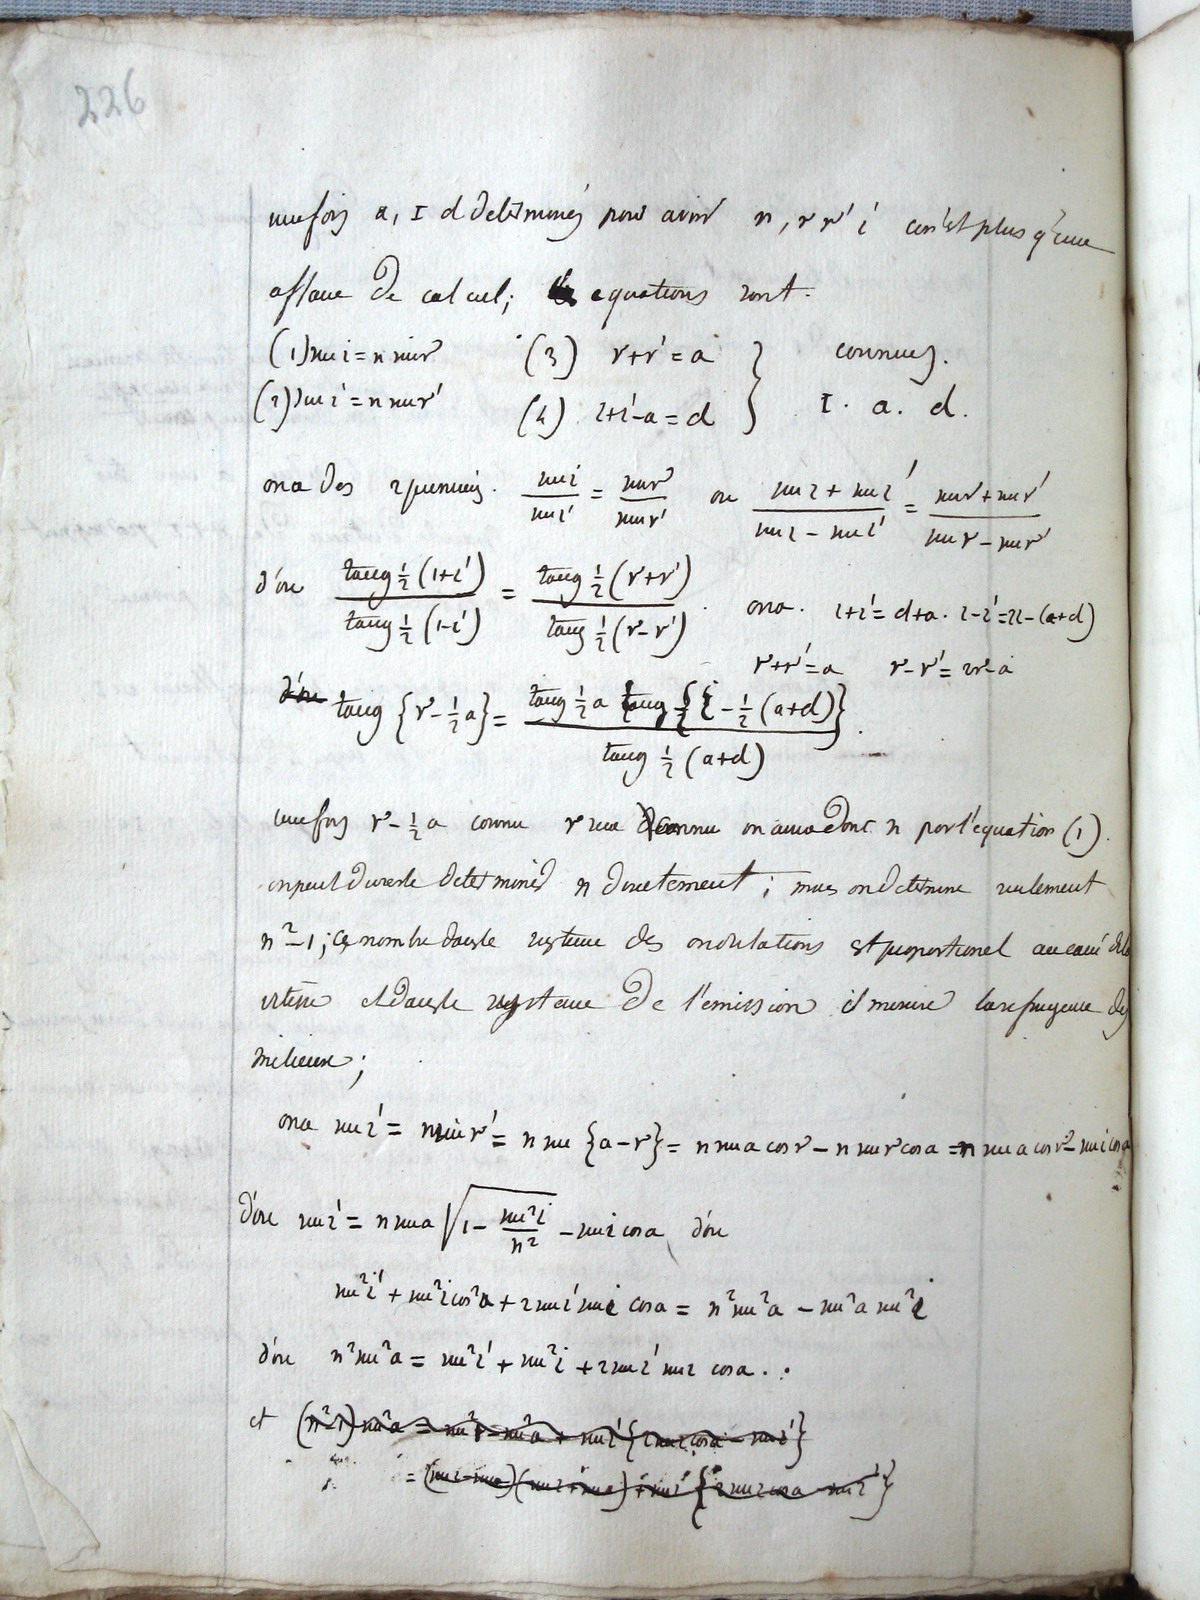 226
une fois a, I d determinés pour avoir n, r r' i' ce n'est plus q'une
affaire de calcul; equations sont.
(1) sin i = n sin r (3) r+r' = a } connues.
(2) sin i' = n sin r' (4) i+i'-a = d } I. a. d.
on a des 2 premieres. sin i / sin i' = sin r / sin r' ou (sin i + sin i') / (sin i - sin i') = (sin r + sin r') / (sin r - sin r')
d'ou tang ½ (i+i') / tang ½ (i-i') = tang ½ (r+r') / tang ½ (r-r'). on a. i+i' = d+a. i-i' = 2i-(a+d)
r+r' = a r-r' = 2r-a
d'ou tang {r-½a} = tang ½a tang {i - ½ (a+d)} / tang ½ (a+d).
une fois r-½a connu r sera connu on aura donc n par l'equation (1).
on peut du reste determiner n directement; mais on determine seulement
n²-1; ce nombre dans le systeme des ondulations est proportionel au carré de la
vitesse et dans le systeme de l'emission il mesure la refringence des
milieux;
on a sin i' = n sin r' = n sin {a-r} = n sin a cos r - n sin r cos a = n sin a cos r - sin i cos a
d'ou sin i' = n sin a √(1 - sin²i / n²) - sin i cos a d'ou
sin²i' + sin²i cos²a + 2 sin i' sin i cos a = n² sin²a - sin²a sin²i
d'ou n² sin²a = sin²i' + sin²i + 2 sin i' sin i cos a..
et (n²-1) sin²a = sin²i - sin²a + sin i' {2 sin i cos a - sin i'}
= (sin i - sin a) (sin i + sin a) + sin i' {2 sin i cos a - sin i'}